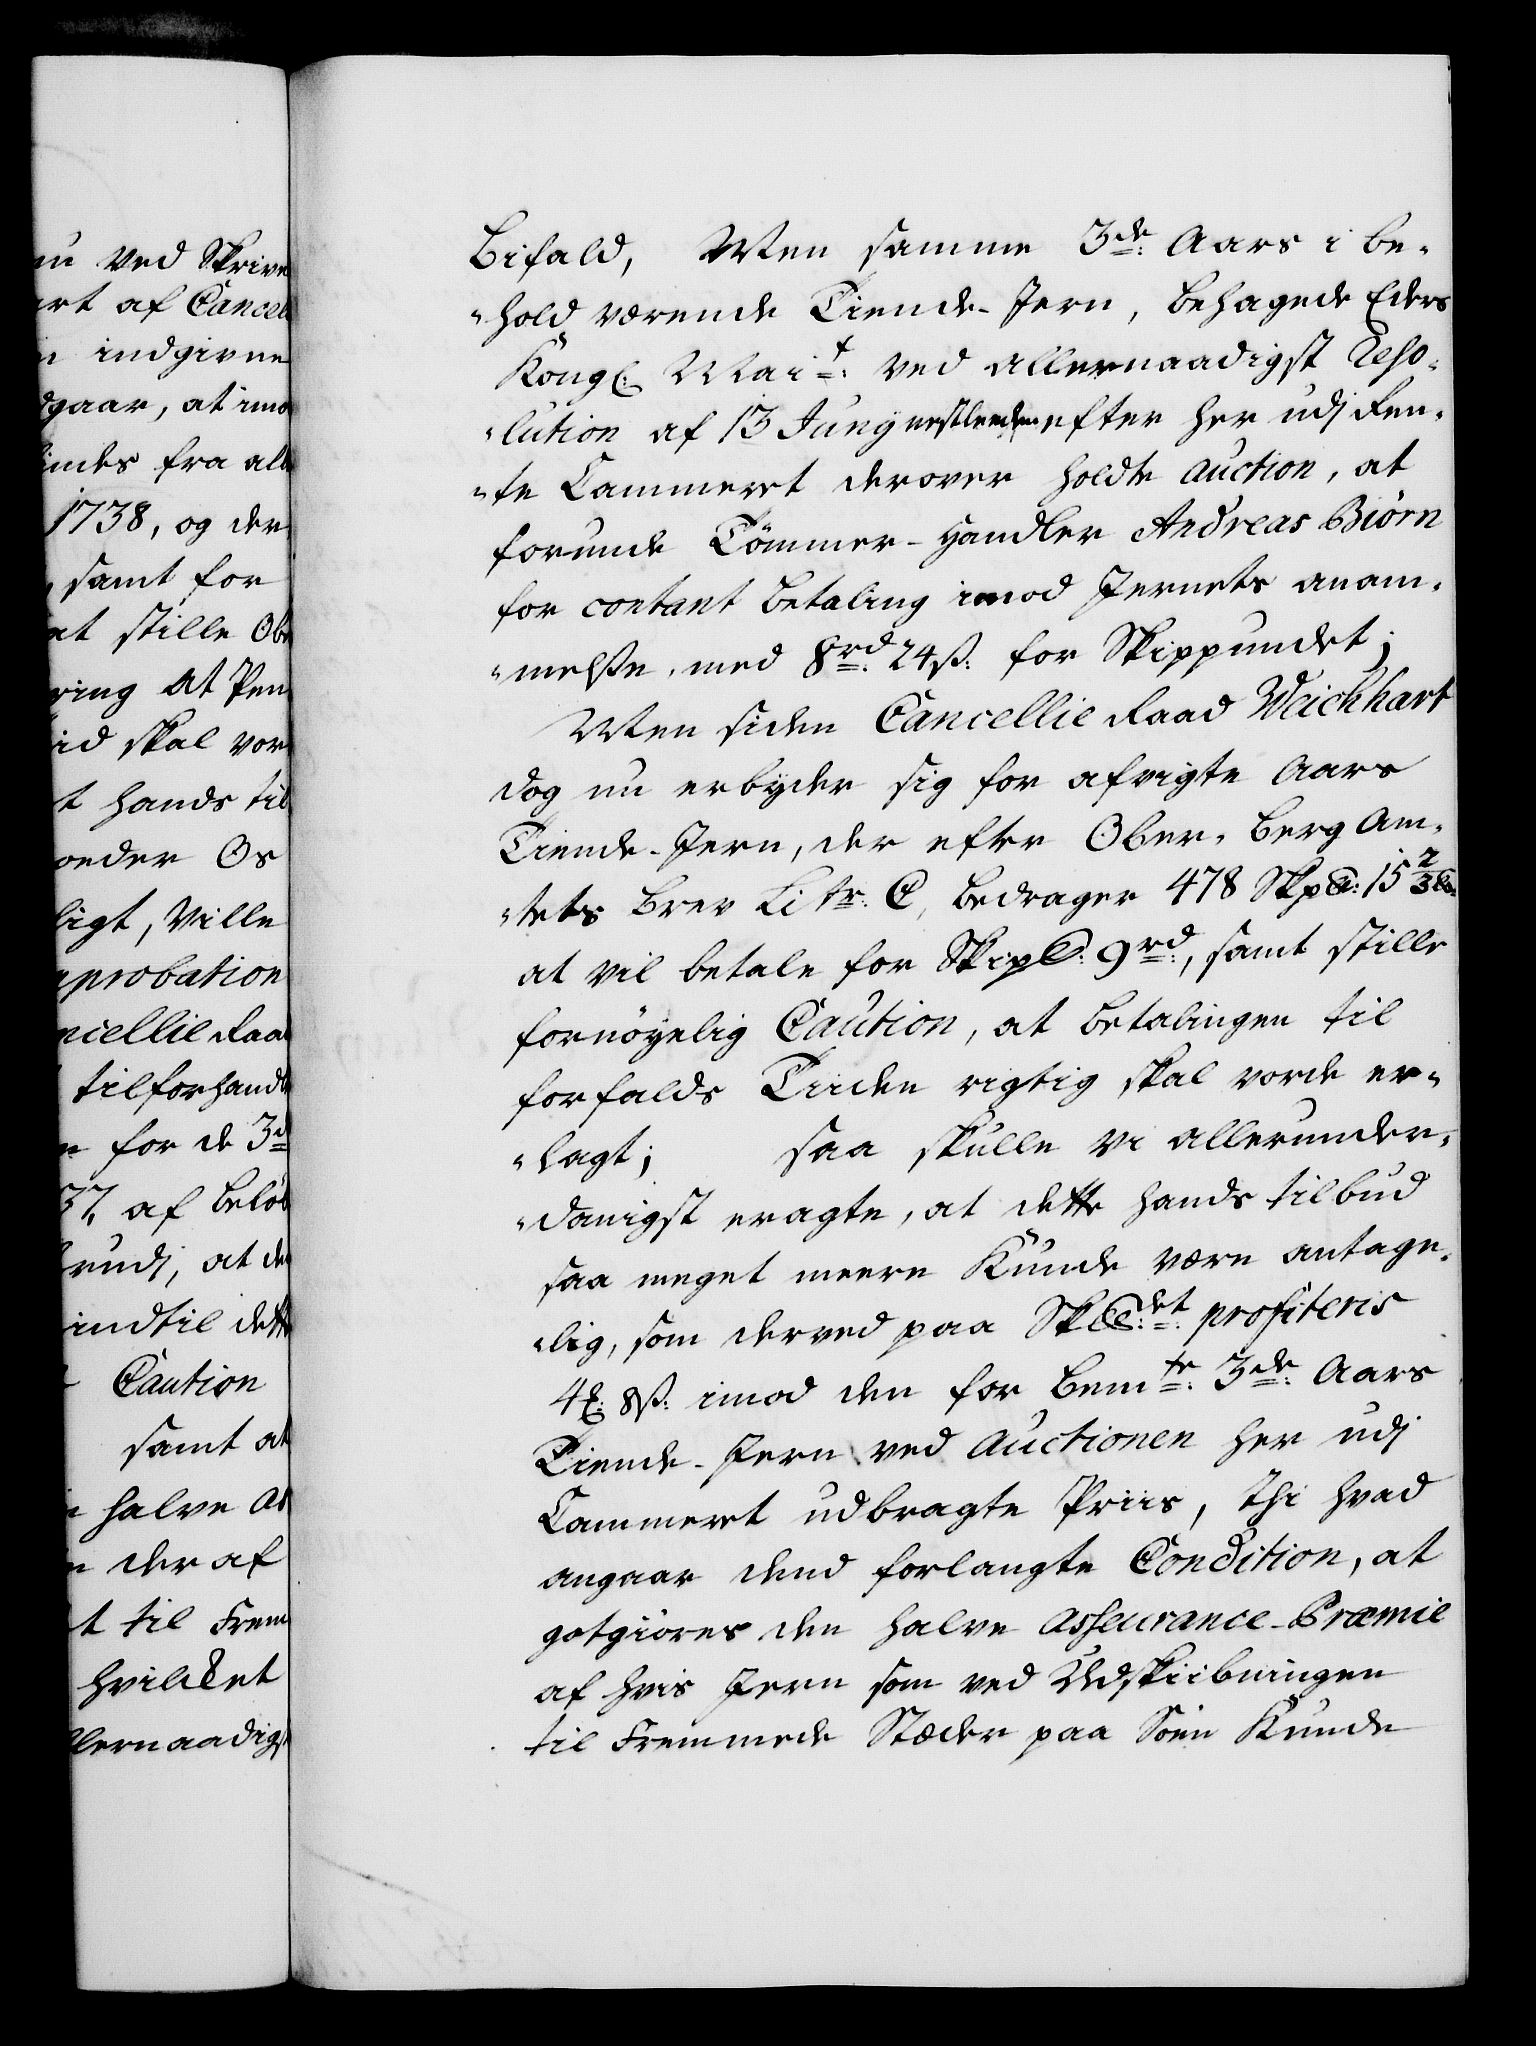 u ved Skrive
rt af Cancel
n indgivne
dgaar, at imo
indes fra all
1738, og der
, samt for
at stille Obe
ring at Pen
id skal vor
t hands til
oeder Os
ligt, Ville
pprobation
ncellie Raa
tilforhandl
n for de 3d
37, af Beløb
rudj, at de
indtil dette
Caution
samt at
n halve As
n der af
t til Frem
hvilcket
llernaadigst
Bifald, Men samme 3de: Aars i be-
"hold værende Tiende-Jern, behagede Eders
Kongl: Mait: ved allernaadigst Reso-
"lution af 13 Junÿ nestleeden efter her udj Ren-
"te Cammeret derover holdte Auction, at
forunde Tømmer-Handler Andreas Biørn
for contant Betaling imod Jernets anam-
"melße, med 8rd: 24ß: for Skippundet;
Men siden Cancellie Raad Weichhart
dog nu erbyder sig for afvigte Aars
Tiende-Jern, der efter Ober-Berg Am-
"tets Brev Litr: C, bedrager 478 Skp℔: 15 2/3 ℔
at vil betale for Skip℔: 9rd:, samt stille
fornøyelig Caution, at Betalingen til
forfalds Tiiden rigtig skal vorde er-
"lagt; saa skulle vi allerunder-
"danigst eragte, at dette hands tilbud
saa meget meere Kunde være antage-
"lig, som derved paa Sk℔:det: profiteris
4ꝶ: 8ß: imod den for bemte: 3de: Aars
Tiende-Jern ved Auctionen her udj
Cammeret udbragte Priis, thi hvad
angaar dend forlangte Condition, at
gotgiøres den halve Asseurance-Præmie
af hvis Jern som ved Udskiibningen
til Fremmede Stæder paa Søen Kunde